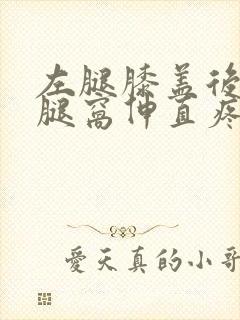 左腿膝盖後
腿窝伸直疼
愛天真的小哥